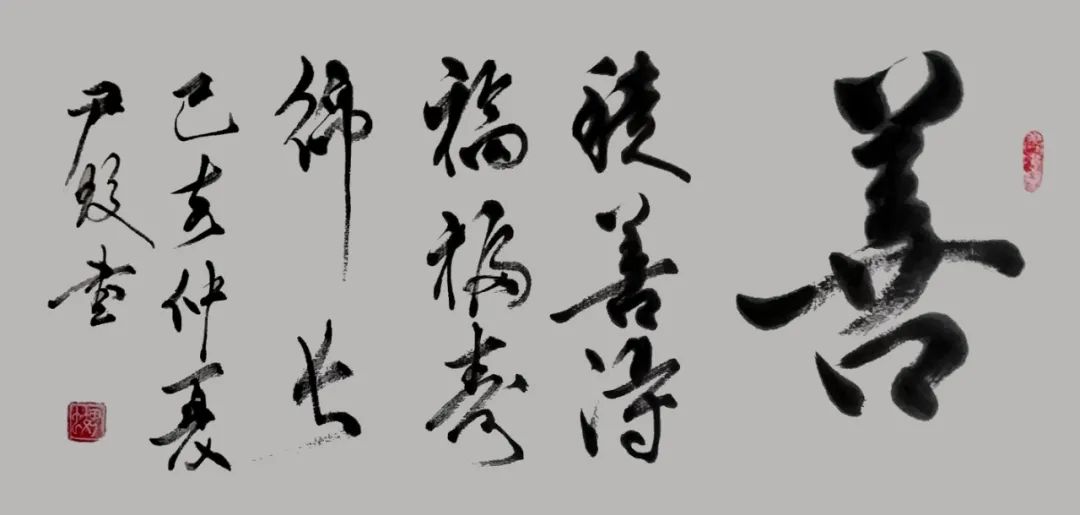 善
積善得
福福壽
綿長
己亥仲夏
尹